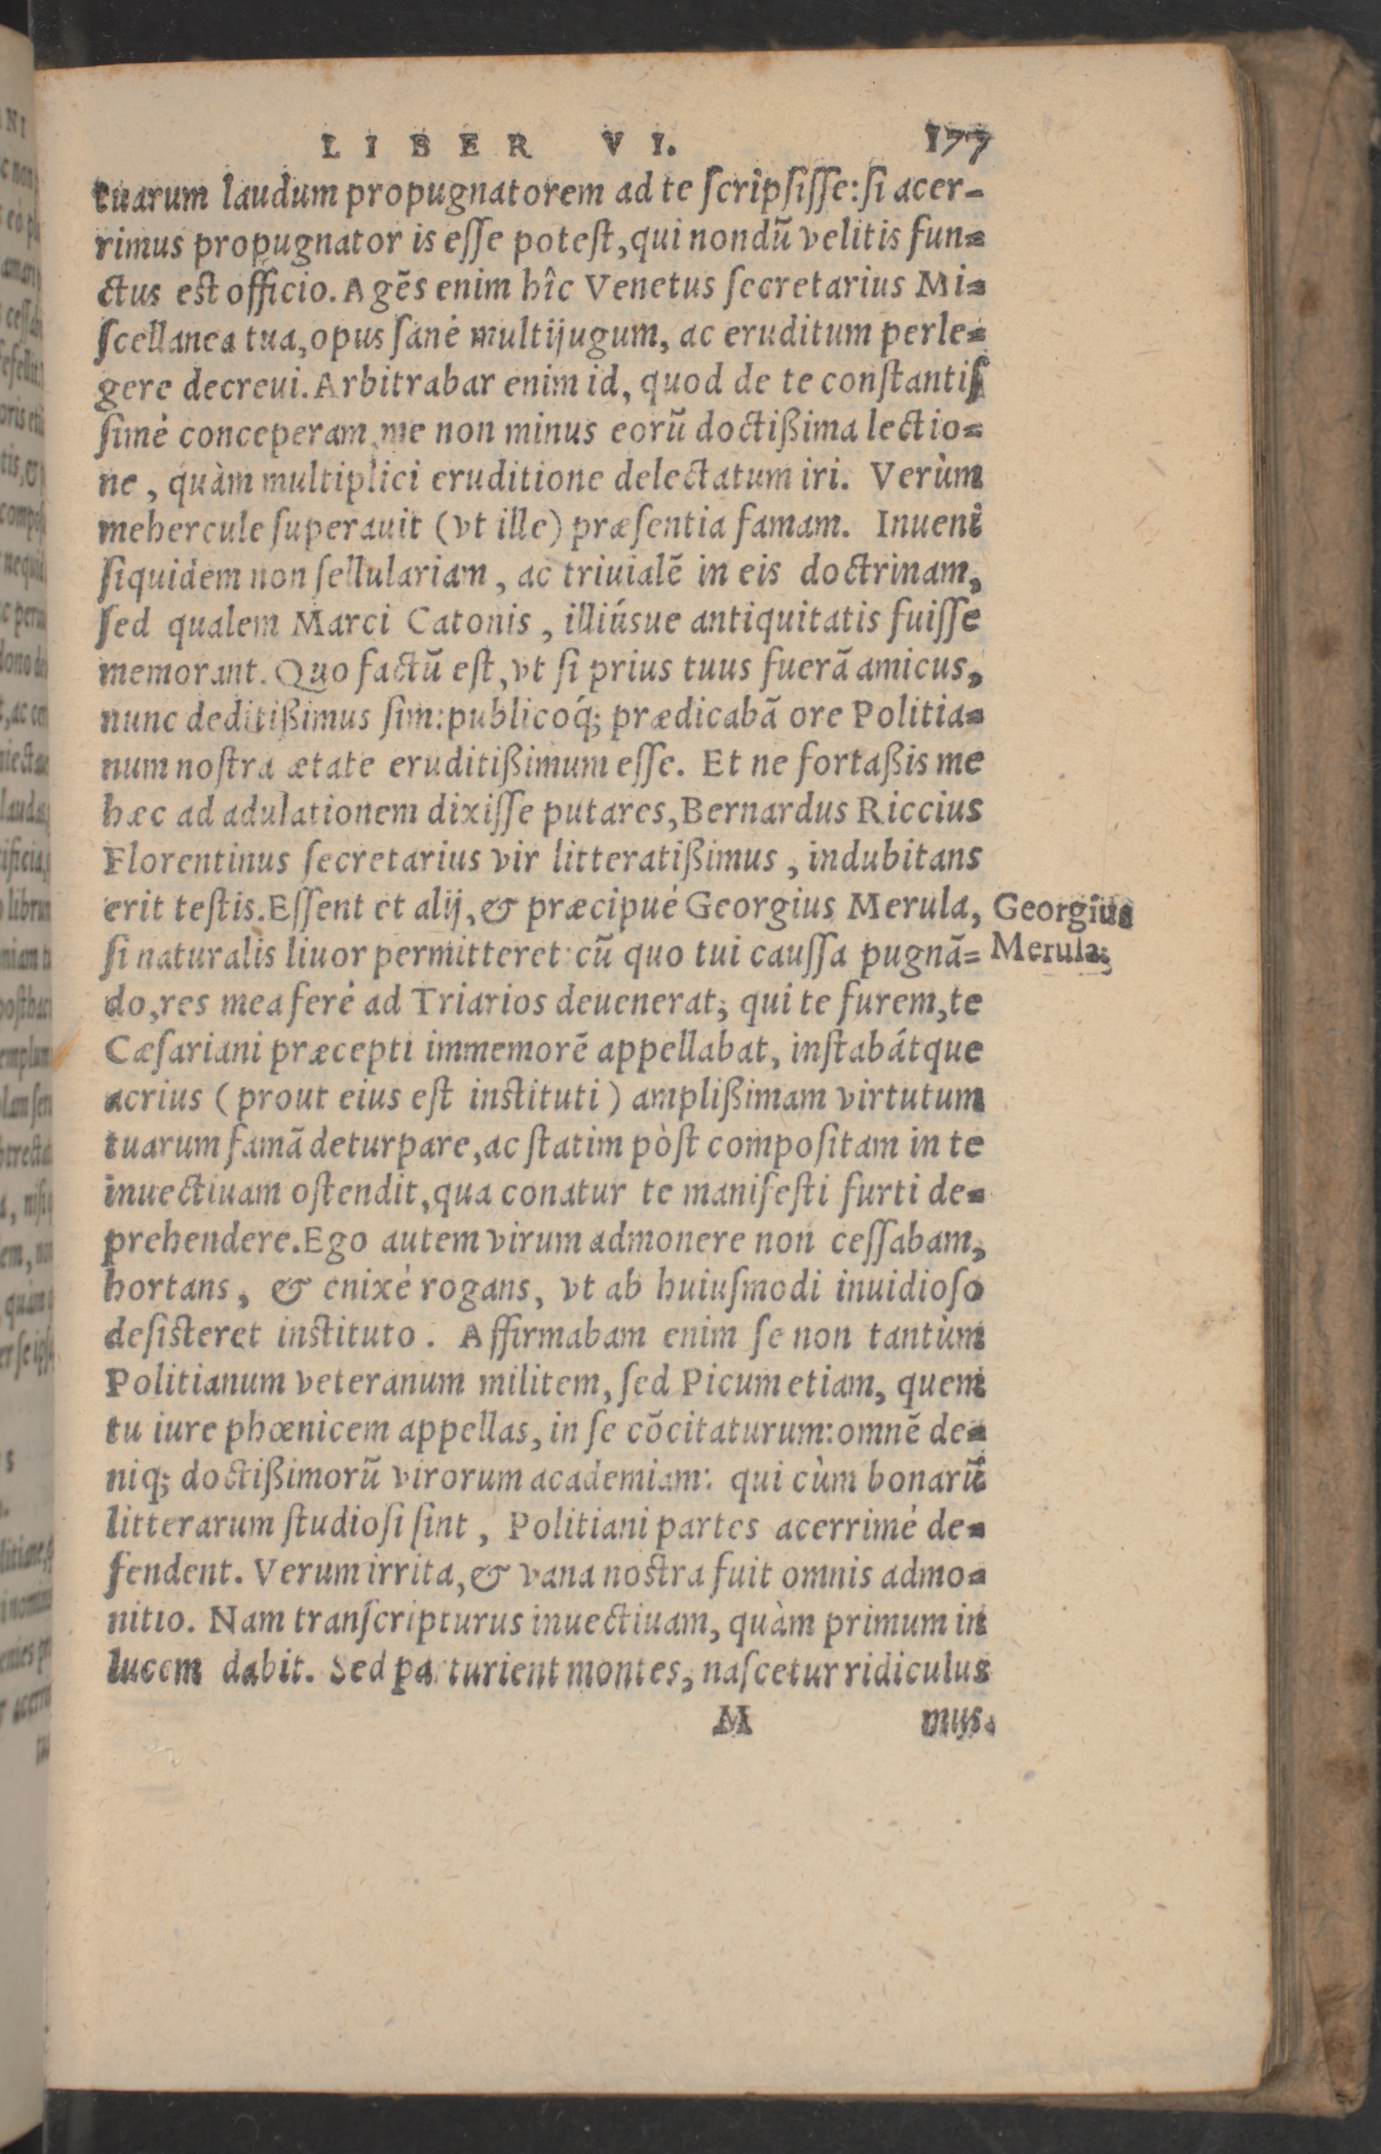 LIBER VI. 177
tuarum laudum propugnatorem ad te ſcripſiſſe: ſi acer-
rimus propugnator is eſſe poteſt, qui nondũ velitis fun-
ctus est officio. Agẽs enim hîc Venetus ſecretarius Mi-
ſcellanea tua, opus ſanè multijugum, ac eruditum perle-
gere decreui. Arbitrabar enim id, quod de te conſtantiſ
ſimè conceperam, me non minus eorũ doctißima lectio-
ne, quàm multiplici eruditione delectatum iri. Verùm
mehercule ſuperauit (vt ille) præſentia famam. Inueni
ſiquidem non ſellulariam, ac triuialẽ in eis doctrinam,
ſed qualem Marci Catonis, illiúsue antiquitatis fuiſſe
memorant. Quo factũ eſt, vt ſi prius tuus fuerã amicus,
nunc deditißimus ſim: publicoq́; prædicabã ore Politia-
num noſtra ætate eruditißimum eſſe. Et ne fortaßis me
hæc ad adulationem dixiſſe putares, Bernardus Riccius
Florentinus ſecretarius vir litteratißimus, indubitans
erit teſtis. Eſſent et alij, & præcipuè Georgius Merula,
ſi naturalis liuor permitteret: cũ quo tui cauſſa pugnã-
do, res mea ferè ad Triarios deuenerat; qui te furem, te
Cæſariani præcepti immemorẽ appellabat, inſtabátque
acrius (prout eius eſt inſtituti) amplißimam virtutum
tuarum famã deturpare, ac ſtatim pòſt compoſitam in te
inuectiuam oſtendit, qua conatur te manifeſti furti de-
prehendere. Ego autem virum admonere non ceſſabam,
hortans, & enixè rogans, vt ab huiuſmodi inuidioſo
deſisteret instituto. Affirmabam enim ſe non tantùm
Politianum veteranum militem, ſed Picum etiam, quem
tu iure phœnicem appellas, in ſe cõcitaturum: omnẽ de-
niq; doctißimorũ virorum academiam: qui cùm bonarũ
litterarum ſtudioſi ſint, Politiani partes acerrimè de-
fendent. Verum irrita, & vana nostra fuit omnis admo-
nitio. Nam tranſcripturus inuectiuam, quàm primum in
lucem dabit. Sed parturient montes, naſcetur ridiculus
M mus.
Georgius
Merula;